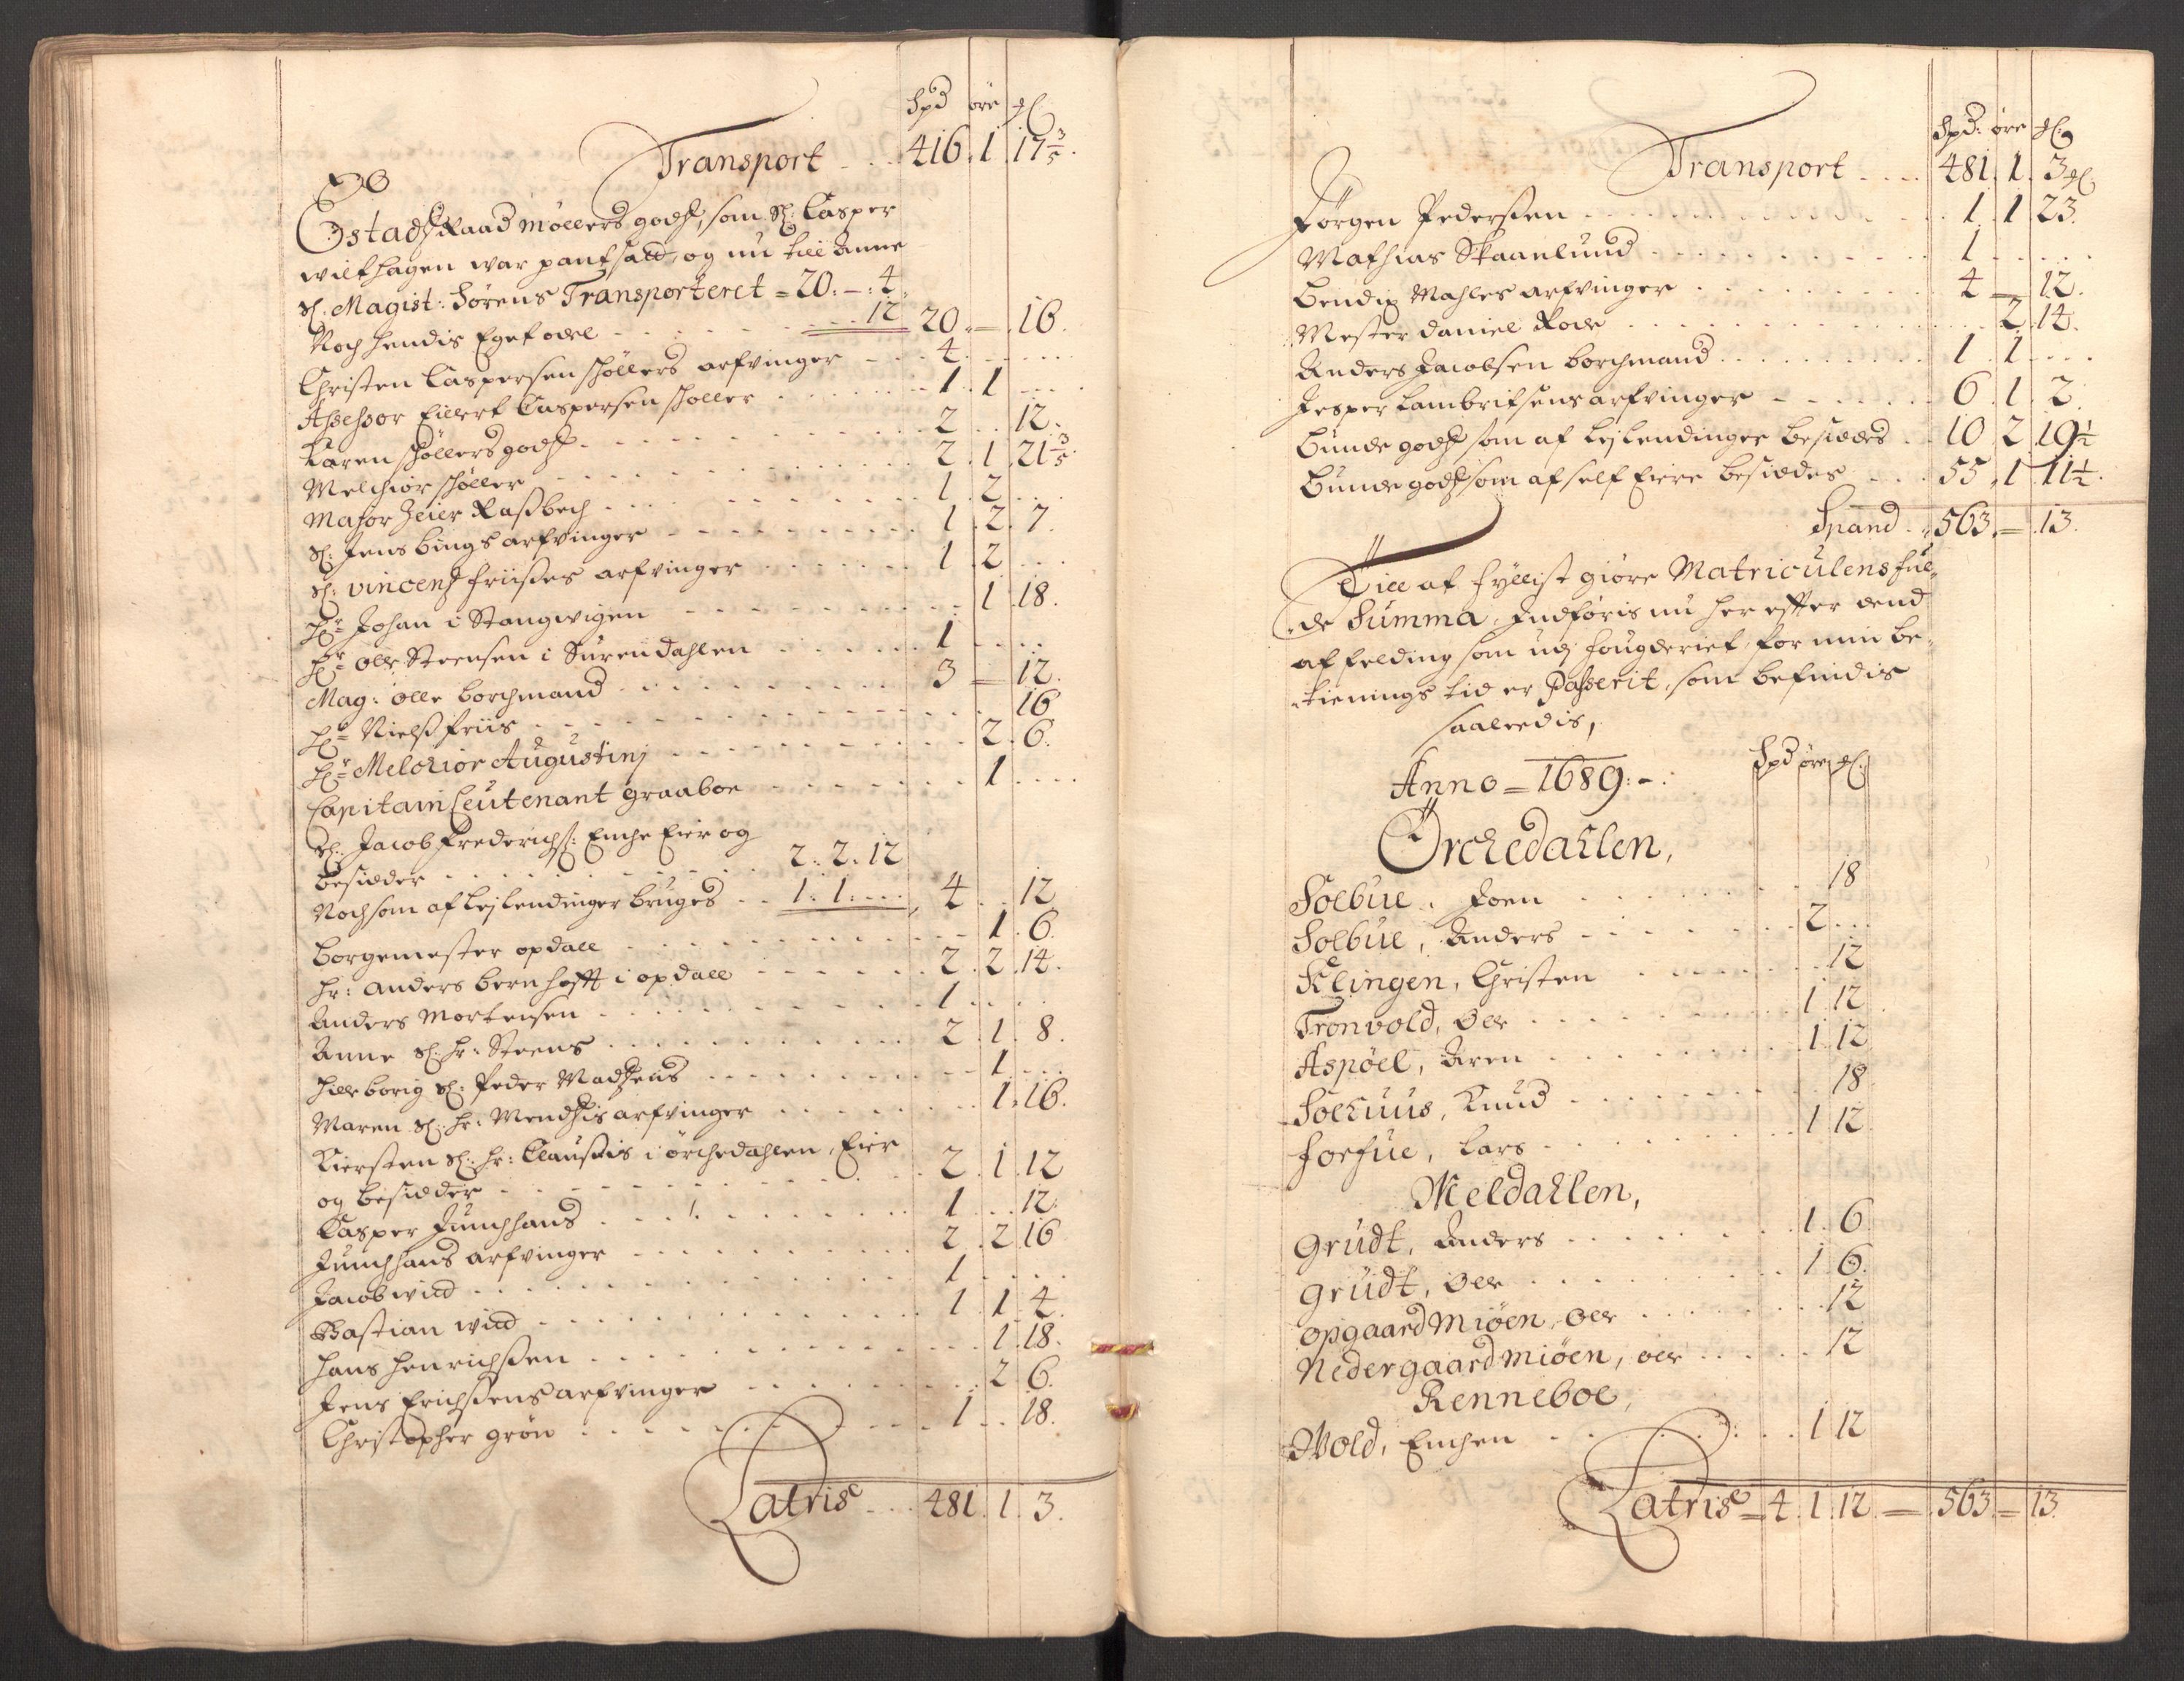 Spd øre
Transport - - - 416. 1. 17 3/5.
Estadz Raad Möllers godz, som Sl: Casper
wilthagen war pantsatt, og nu till Anne
Sl. Magist: Sörens Transporteret = 20: - : 4.
Noch hendis Eget odel - - - - - - - - 12 20. — . 16.
Christen Caspersen schöllers arfvinger - - - 4. . . . .
Assessor Eillert Caspersen schöller . . . . . 1. 1 . . .
Karen schöllers godz . . . . . . . 2 . . 12.
Melchior schöller . . . . . . . 2. 1. 21 3/5.
Major Zeier Rassbech . . . . . . . 1. 2 . .
Sl: Jens bings arfvinger - - - - - - 1. 2. 7.
Sl: vincentz friisses arfvinger . . . . . . 1 2 . . .
Hr Johan i Stangvigen - - - - - - - 1. 18.
Hr olle Steensen i Surendahlen . . . . . . 1 . . . .
Mag: olle borchmand . . . . . . . . 3 — 12.
Hr Nielss friis . . . . . . . . . . . 16
Hr Melchior Augustinj - - - - - - - . 2. 6.
Capitain Leutenant graaboe - - - - - . 1 . . .
Sl. Jacob Frederichs: Enche Eier og
besidder . . . . . . . . . 2. 2. 12
Noch som af Lejlendinger bruges . . 1. 1. . . . 4 . . 12
borgemester opdall - - - - - - - 1. 6.
hr: Anders bernhofft i opdall - - - - - 2. 2. 14.
Anders Mortensen . . . . . . . . 1 . . .
Anne Sl. hr: Steens . . . . . . . . 2. 1. 8.
Hilleborig Sl: Peder Madzens . . . . . . . 1 . . .
Maren Sl: hr: Mendzis arfvinger . . . . . . 1. 16.
Kiersten Sl: hr: Claussis i örchedahlen, Eier
og besidder . . . . . . . . . 2. 1. 12
Casper Junchhans . . . . . . . . 1 . . 12.
Junchhans arfvinger - - - - - - - 2. 2 16
Jacob wiid . . . . . . . . . . . 1 . . . .
Bastian wiid . . . . . . . . . 1. 1. 4.
hans henrichssen . . . . . . . . . 1. 18.
Jens Erichssens arfvinger - - - - - - . 2 6.
Christopher grön . . . . . . . . 1 . . 18.
Latris - - - 481. 1. 3.
Spd: øre
Transport . . . . 481. 1. 3
Jörgen Pederssen - - - - - - - - - 1. 1 23.
Mathias Skaanlund . . . . . . . . . 1 . . . .
bendix Mahles arfvinger . . . . . . . 4 — 12.
Mester daniel Rode . . . . . . . . . . 2. 14.
Anders Jacobsen borchmand . . . . . . . 1. 1 . . .
Jesper Lambritsens arfvinger - - - - - 6. 1. 2.
bunde godz som af lejlendinger besiddes . . 10 2 19 1/2
bunde godz som af self Eiere besiddes . . . 55. 1 11 1/2.
Spand . . 563. — 13.
Till at fyllist giöre Matriculens ful-
de Summa, Indföris nu her effter dend
affelding som udj fougderiet for min be-
tienings tid er Passerit, som befindis
saaledis,
Anno = 1689: - .
Spd øre
Örchedahlen,
Solbue. Joen . . . . . . . . . 18
Solbue, Anders - - - - - - . 2 . . .
Klingen, Christen . . . . . . . . 12
Tronvold, Ole . . . . . . . . 1 12
Aspöel, Aren . . . . . . . . 1. 12.
Solhuus, Knud . . . . . . . . 18
forfue, Lars . . . . . . . . 1 12
Meldahlen,
Grüdt, Anders . . . . . . . . 1. 6.
Grüdt, Ole . . . . . . . . . 1 6.
opgaard Miöen, Ole . . . . . . . 12
Nedergaard miöen, Ole . . . . . . 12
Renneboe,
Wold, Enchen . . . . . . . . 1 12
Latris = 4. 1. 12 = 563 = 13.